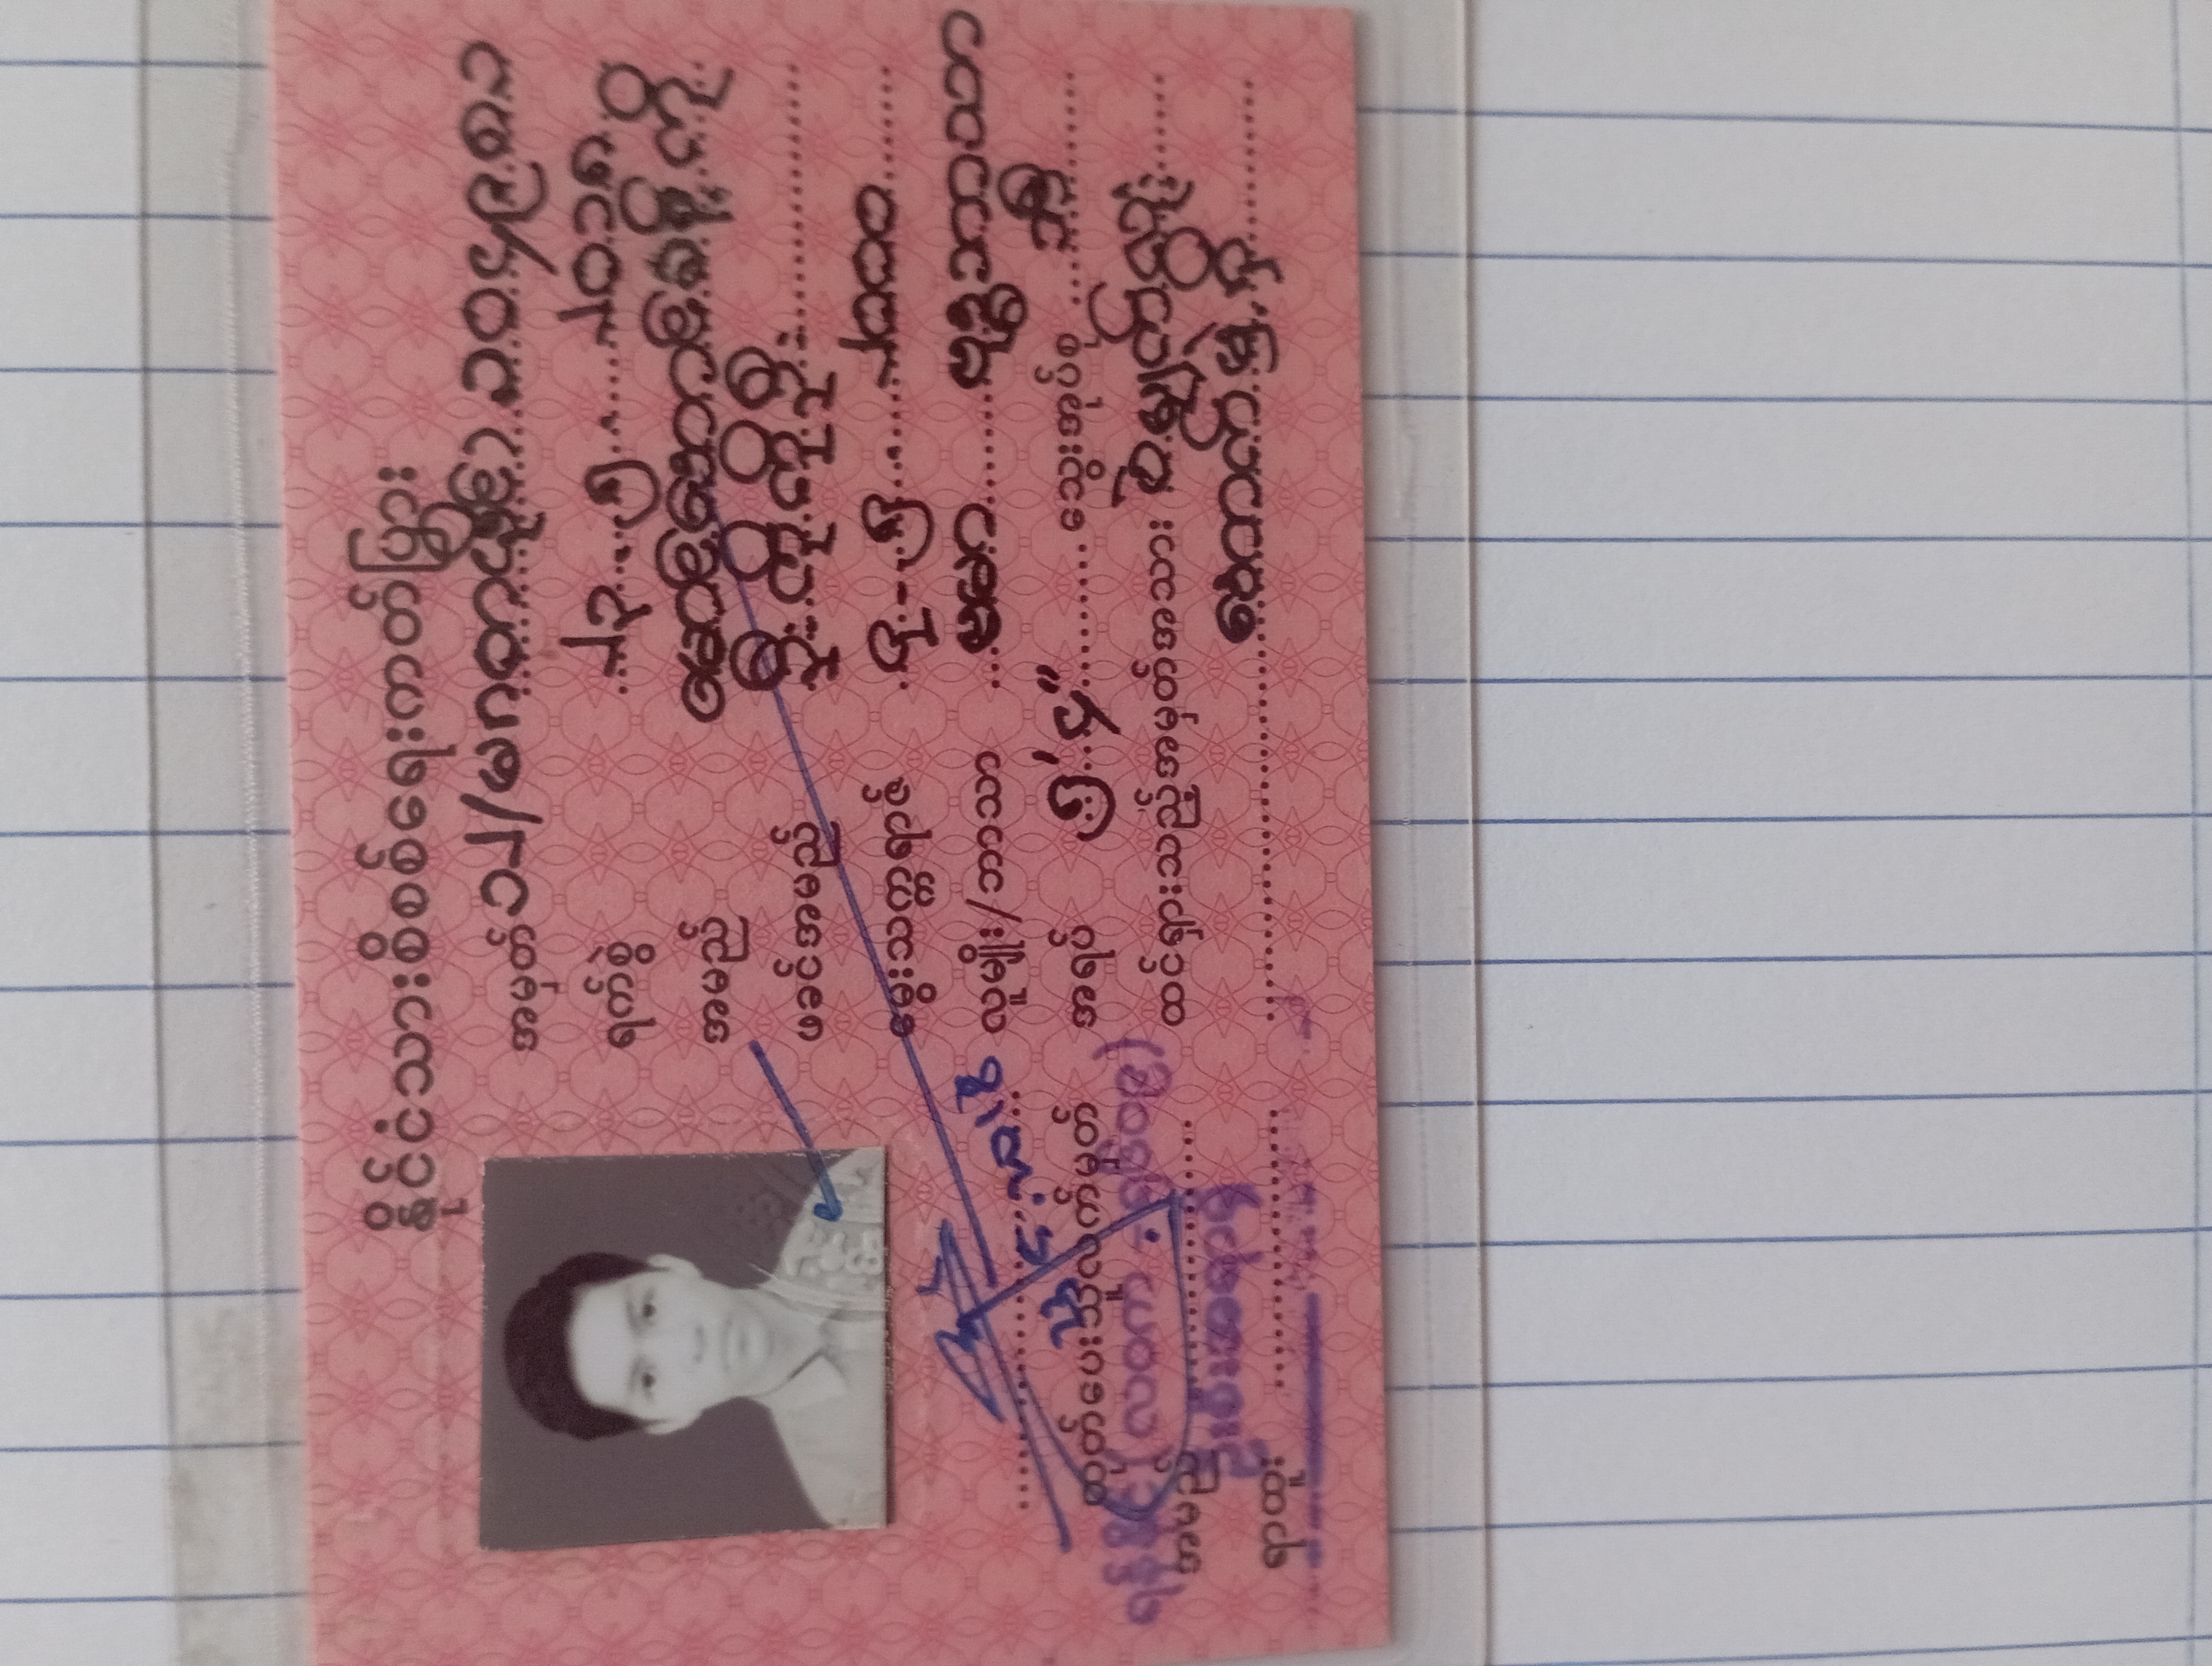 နိုင်ငံသားစိစစ်ရေးကတ်ပြား
အမှတ် ၁၂/မဂတ(နိုင်) ၁၀၄၉၈၁
ရက်စွဲ ၂၃ . ၅ . ၂၀၁၈
အမည် မောင်အောင်ခန့်ကို
ဖခင်အမည် ဦးကိုကိုဦး
မွေးသက္ကရာဇ် ၄ - ၅ - ၂၀၀၀
လူမျိုး/ဘာသာ ဗမာ ဗုဒ္ဓဘာသာ
အရပ် ၅' ၄" သွေးအုပ်စု အို
ထင်ရှားသည့်အမှတ်အသား ဝဲမျက်လုံး
အောက်မှဲ့ရှိ
ထုတ်ပေးသူလက်မှတ်
ရန်နိုင် (လဝက
အမည်
ဦးစီးအရာရှိ
ရာထူး